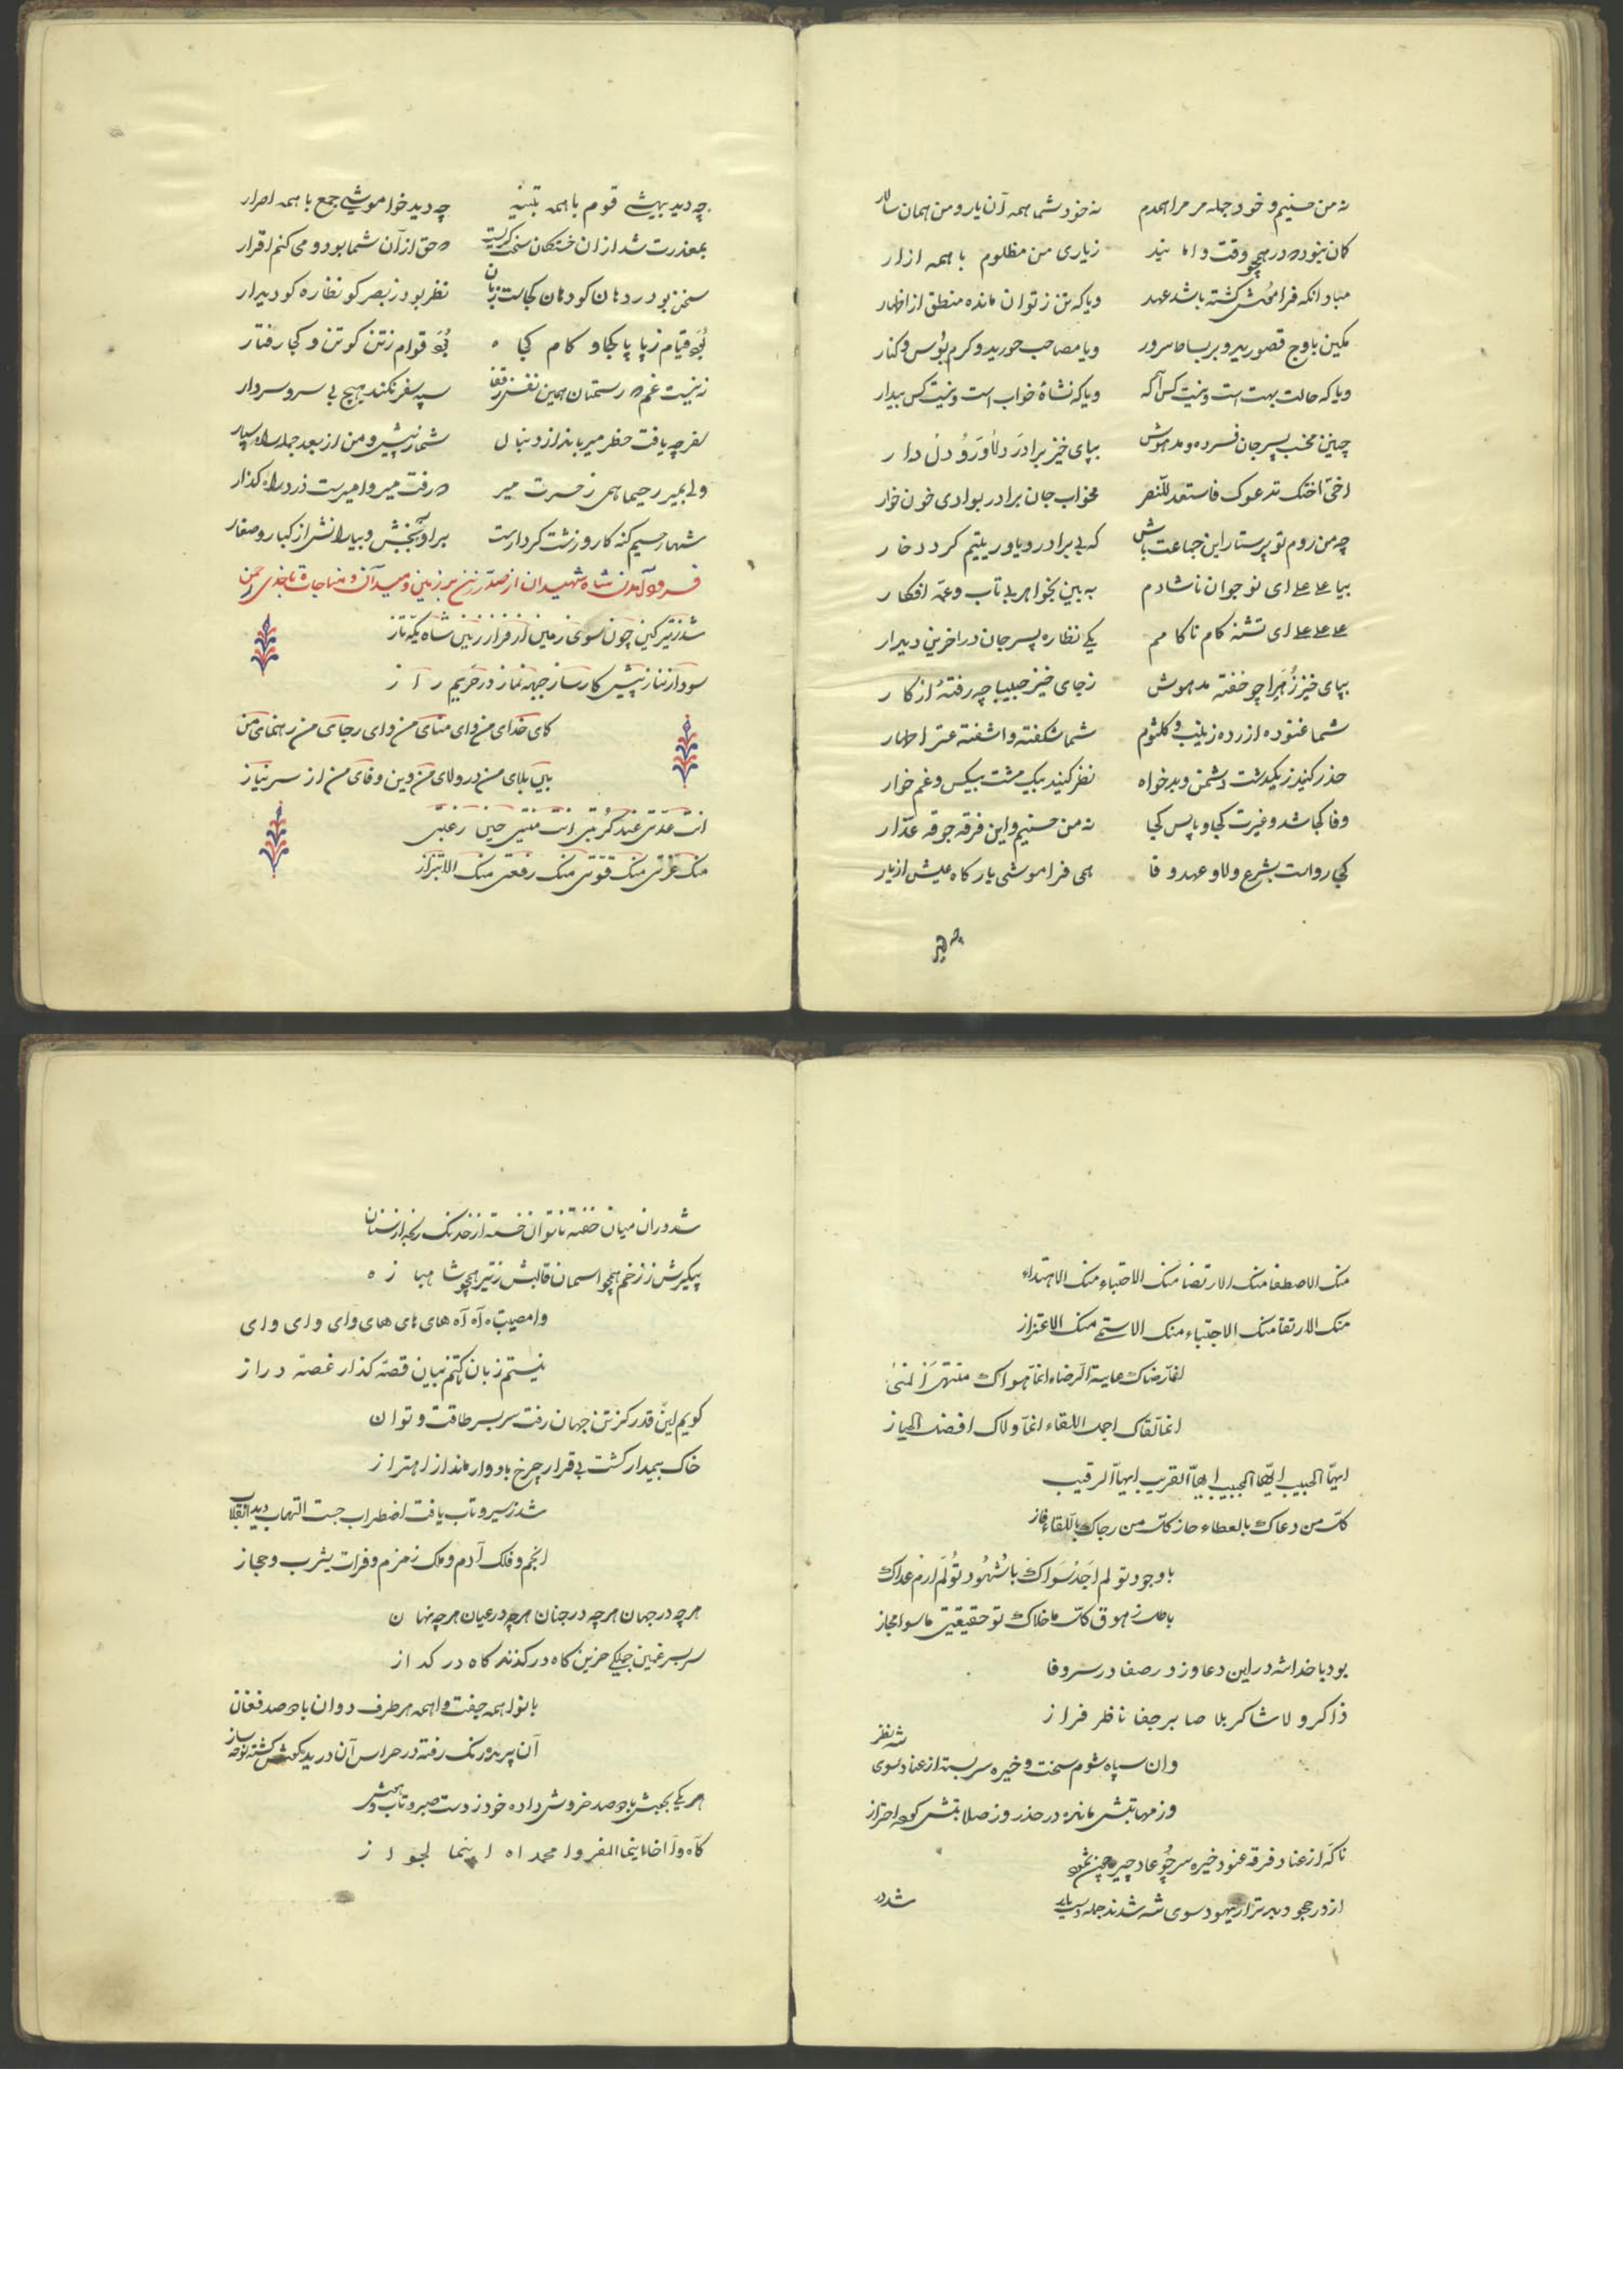 نه من حسینم و خود جمله مر مرا همدم نه خود شما همه آن یار و من همان سالار
کان نبوده در هیچ وقت و اما نید زیاری من مظلوم با همه ازار
مباد انکه فراموش کشته باشد عهد و یا که تن ز توان مانده منطق از اظهار
مکین باوج قصورید و بر بساط سرور و یا مصاحب حورید و کرم بوس و کنار
و یا که حالت بهت است و نیست کس آکه و یا که نشاهٔ خواب است و نیست کس بیدار
چنین مخسب پسر جان فسرده و مدهوش بپای خیز برادر دلاور و دل دار
اخی اختک تدعوک فاستعد للنصر مخواب جان برادر بوادی خون خوار
چه من روم تو پرستار این جماعت باش که بی برادر و یاور یتیم کردد خار
بیا علی علی ای نوجوان ناشادم به بین بخواهر بی تاب و عمه افکار
علی علی علی ای تشنه کام ناکامم یکی نظاره پسر جان در اخرین دیدار
بپای خیز زهیرا چو خفته مدهوش زجای خیز حبیبا چه رفتهٔ از کار
شما غنوده از رده زینب و کلثوم شما شکفته و اشفته عترت اطهار
حذر کنید ز یکدشت دشمن و بدخواه نظر کنید بیک مشت بیکس و غم خوار
وفا کجا شد و غیرت کجا و پاس کجا نه من حسینم و این فرقه جوقه غدار
کجی رواست بشرع ولا و عهد و فا همی فراموشی یار کاه عیش از یار
چه دید
چه دید بیهشی قوم با همه تنبیه چه دید خواموشی جمع با همه اصرار
بمعذرت شد از ان خستکان سخت کریست که حق از آن شما بود و می کنم اقرار
سخن بود ز دهان کو دهان کجاست زبان نظر بود ز بصر کو نظاره کو دیدار
بود قیام ز پا پا کجا و کام کجا بود قوام ز تن کو تن و کجا رفتار
ز نیست غم که رستمتان همین نفس ز قفا سپه سفر نکند هیچ بی سر و سردار
سفر چه یافت خطر میر باید از دنبال شما ز پیش و من از بعد جمله راه سپار
ولا بمیر رحیما همی ز حسرت میر که رفت میر و امیرت ز دراه کذار
شها رحیم کنه کار و زشت کردار است براو ببخش و بیارانش از کبار و صغار
فرود آمدن شاه شهیدان از صدر زین بر زمین و میدان و مناجات با خدای رحمن
شد ز تیر کین چون سوی زمین از فراز زین شاه یکه تاز
سود از نیاز پیش کارساز جبهه نماز در حریم راز
کای خدای من وای منای من وای رجای من رهنمای من
بابی بلای من در ولای من دین وفای من از سر نیاز
انت عدتی عند کربتی انت منتی حین رغبتی
منک عزتی منک قوتی منک رفعتی منک الابتزاز
منک الاصطفا منک الارتضا منک الاحتباء منک الاهتداء
منک الارتقا منک الاجتباء منک الاستماء منک الاعتزاز
انما رضاک غایة الرضاء انما هواک منتهی المنی
انما لقاک اجمل اللقاء انما ولاک افضل الحیاز
ایها الحبیب ایها المجیب ایها القریب ایها الرقیب
کل من دعاک بالعطاء حاز کل من رجاک باللقاء فاز
با وجود تو لم اجد سواک با شهود تو لم ارم عداک
باطل زهوق کل ما خلاک تو حقیقتی ماسوا مجاز
بود با خدا شه در این دعا وز در صفا در سر وفا
ذاکر ولا شاکر بلا صابر جفا ناظر فراز
وان سپاه شوم سخت و خیره سر بسته از عناد سوی شه نظر
وز مهابتش مانده در حذر وز صلابتش کرده احتراز
ناکه از عناد فرقه عنود خیره سر چو عاد چیره چون ثمود
از در جحود بدتر از یهود سوی شه شدند جمله
شد در
شد دران میان خفته ناتوان خسته از خدنک رنجه از سنان
پیکرش ز زخم همچو اسمان قالبش ز تیر همچو شاهباز
وا مصیبتاه آه آه های های های وای وای وای
نیستم زبان تا کنم بیان قصه کذار غصه دراز
کویم این قدر کز تن جهان رفت سر بسر طاقت و توان
خاک بیمدار کشت بی قرار چرخ باد وار ماند از اهتزاز
شد ز سیر و تاب یافت اضطراب جست التهاب دید انقلاب
انجم و فلک آدم و ملک زمزم و فرات یثرب و حجاز
هر چه در جهان هر چه در جنان هر چه در عیان هر چه نهان
سر بسر غمین جملکی حزین کاه در کزند کاه در کداز
بانوا همه جفت واهمه هر طرف دوان با دو صد فغان
آن پریده رنک رفته در حراس آن دریده کوش کشته نوحه ساز
هر یکی بجیش با دو صد خروش داده خود ز دست صبر و تاب و هش
کآه وا اخا اینما المفر وا محمداه اینما لجواز